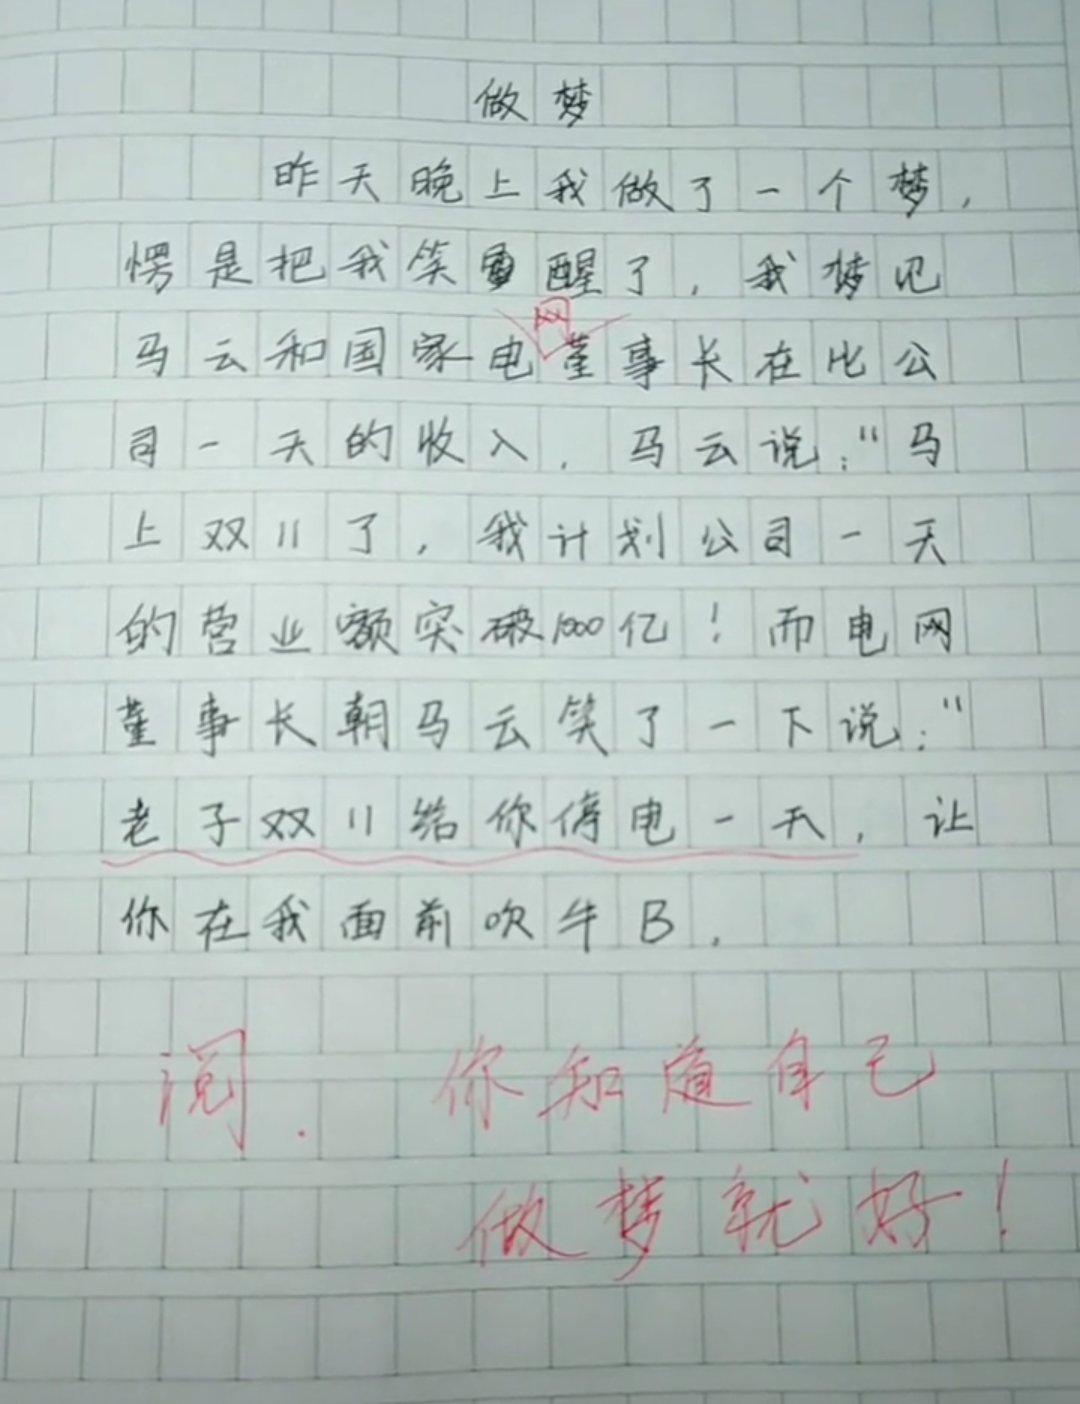 做梦
昨天晚上我做了一个梦，
愣是把我笑醒了，我梦见
网
马云和国家电董事长在比公
司一天的收入，马云说："马
上双11了，我计划公司一天
的营业额突破1000亿！而电网
董事长朝马云笑了一下说："
老子双11给你停电一天，让
你在我面前吹牛B。
阅. 你知道自己
做梦就好！